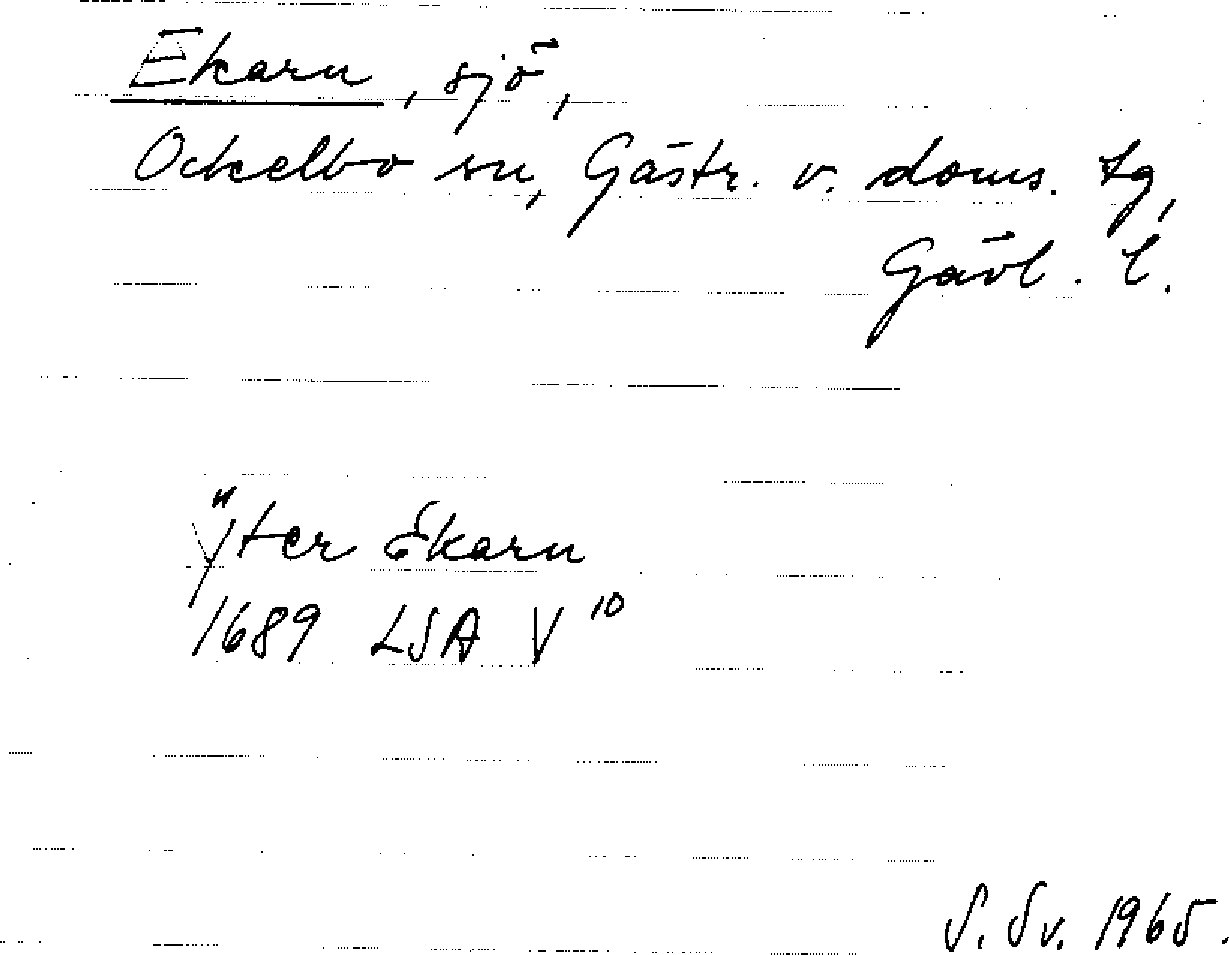 Ekarn, sjö,
Ockelbo sn, Gästr. v. doms. tg,
Gävl. l.
Ÿter Ekarn
1689 LSA V 10
S. Sv. 1965.